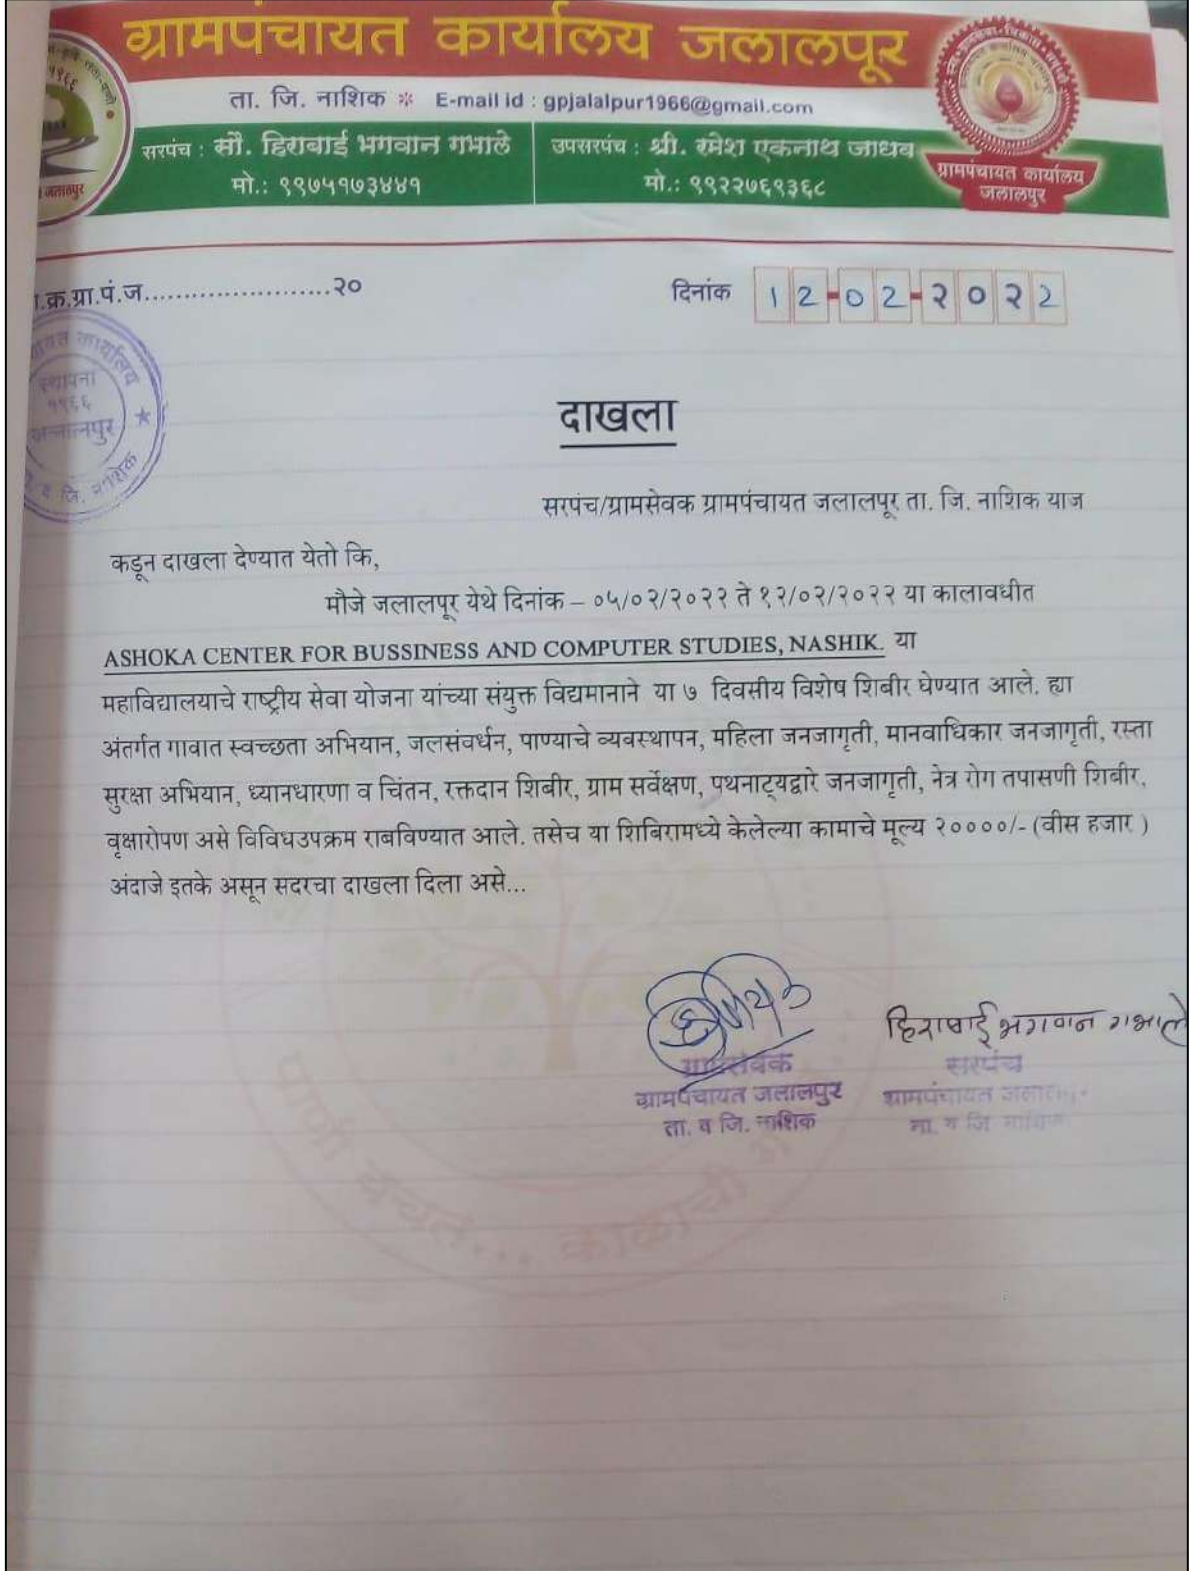 ग्रामपंचायत कार्यालय जलालपूर
ता. जि. नाशिक ❋ E-mail id : gpjalalpur1966@gmail.com
सरपंच : सौ. हिराबाई भगवान गभाले
मो.: ९९७५१७३४४१
उपसरपंच : श्री. रमेश एकनाथ जाधव
मो.: ९९२२७६९३६८
ग्रामपंचायत कार्यालय
जलालपुर
.क्र.ग्रा.पं.ज........................२०
दिनांक 12-02-२०२2
कार्यालय
स्थापना
१९६६
जलालपुर
व जि. नाशिक
दाखला
सरपंच/ग्रामसेवक ग्रामपंचायत जलालपूर ता. जि. नाशिक याज
कडून दाखला देण्यात येतो कि,
मौजे जलालपूर येथे दिनांक – ०५/०२/२०२२ ते १२/०२/२०२२ या कालावधीत
ASHOKA CENTER FOR BUSSINESS AND COMPUTER STUDIES, NASHIK. या
महाविद्यालयाचे राष्ट्रीय सेवा योजना यांच्या संयुक्त विद्यमानाने या ७ दिवसीय विशेष शिबीर घेण्यात आले. ह्या
अंतर्गत गावात स्वच्छता अभियान, जलसंवर्धन, पाण्याचे व्यवस्थापन, महिला जनजागृती, मानवाधिकार जनजागृती, रस्ता
सुरक्षा अभियान, ध्यानधारणा व चिंतन, रक्तदान शिबीर, ग्राम सर्वेक्षण, पथनाट्यद्वारे जनजागृती, नेत्र रोग तपासणी शिबीर,
वृक्षारोपण असे विविधउपक्रम राबविण्यात आले. तसेच या शिबिरामध्ये केलेल्या कामाचे मूल्य २००००/- (वीस हजार )
अंदाजे इतके असून सदरचा दाखला दिला असे...
हिराबाई भगवान गभाले
ग्रामसेवक
ग्रामपंचायत जलालपुर
ता. व जि. नाशिक
सरपंच
ग्रामपंचायत